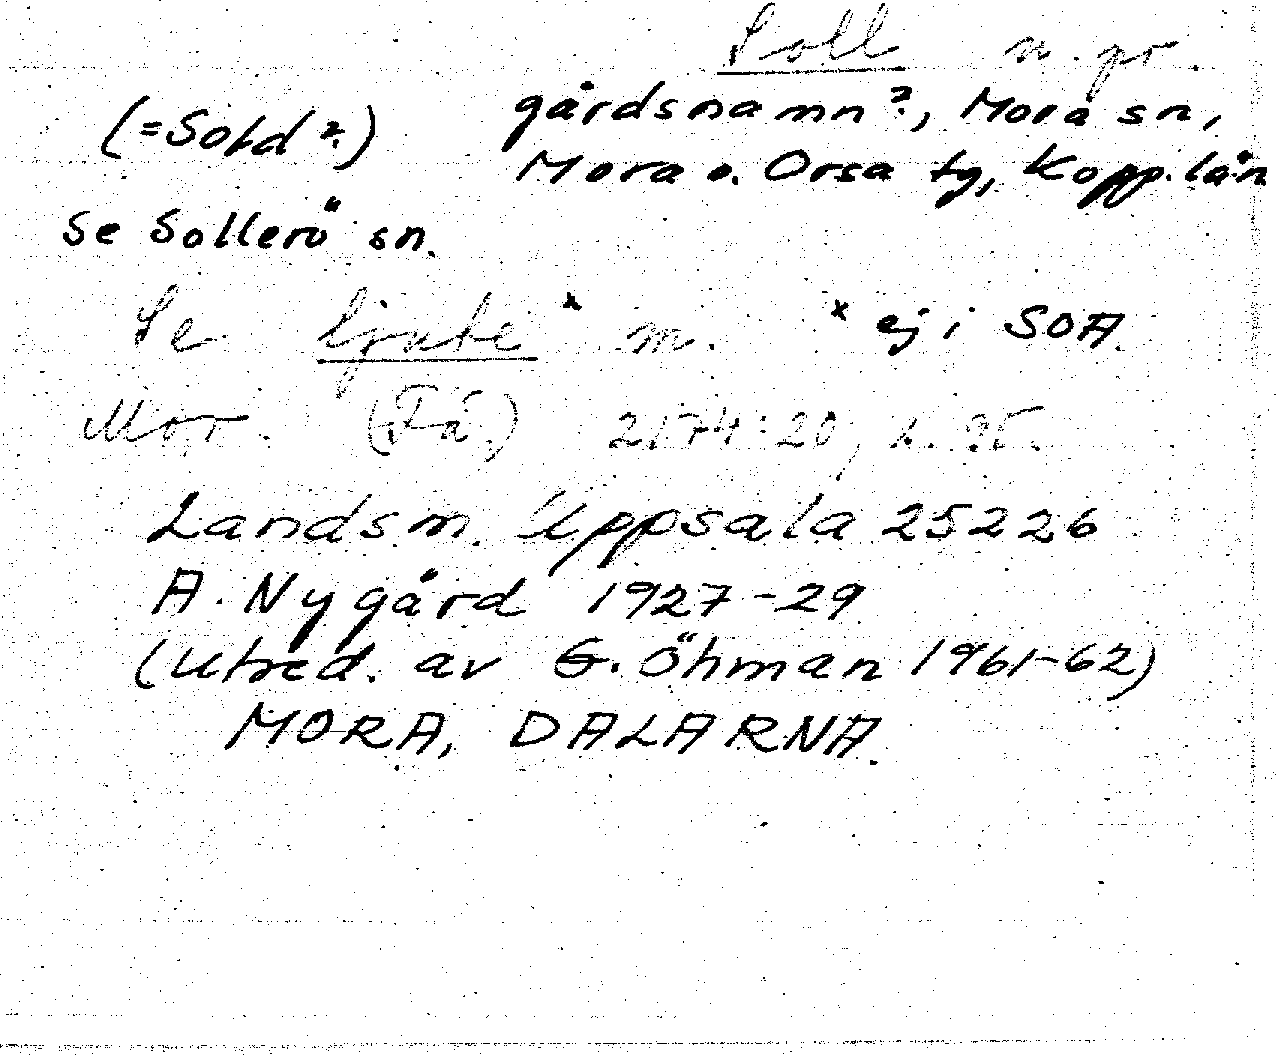 Soll n. pr.
(=Sold?) gårdsnamn?, Mora sn,
Mora o. Orsa tg, Kopp. län
Se Sollerö sn.
Se ljute x m. x ej i SOA.
Mor. (Få.) 2174:20, s. 95.
Landsm. Uppsala 25226
A. Nygård 1927-29
(Utred. av G. Öhman 1961-62)
MORA, DALARNA.